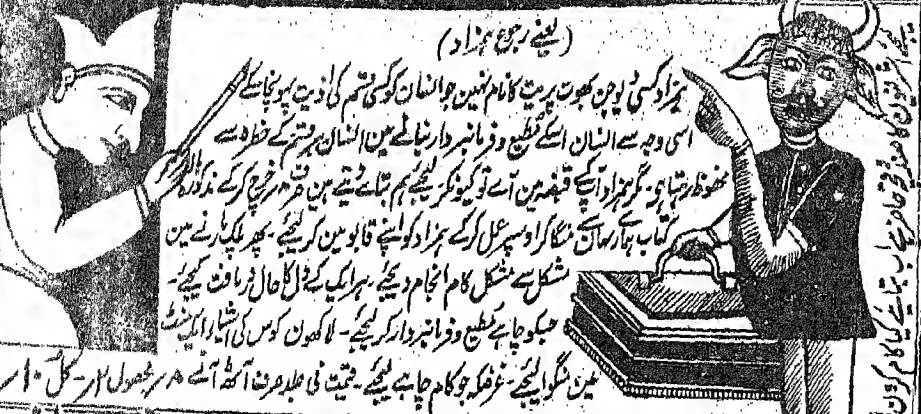 (یعنے رجوع ہمزاد)
ہمزاد کسی دیو جن بھوت پریت کا نام نہین جو انسان کو کسی قسم کی اذیت پہونچا سکے
اسی وجہ سے انسان اسکے مطیع و فرمانبردار بنانے مین انسان ہر قسم کے خطرہ سے
محفوظ رہتا ہی۔ مگر ہمزاد آپکے قبضہ مین آے تو کیونکر۔ لیجئے ہم بتائے دیتے ہین صرف ۸؍ خرچ کرکے مذکورہ بالا
کتاب ہمارے یہان سے منگا کر اوسپر عمل کرکے ہمزاد کو اپنے قابو مین کر لیجئے۔ پھر پلک مارنے مین
مشکل سے مشکل کام انجام دیجئے۔ ہر ایک کے دل کا حال دریافت کیجئے۔
جسکو چاہے مطیع و فرمانبردار کر لیجئے۔ لاکھون کوس کی اشیا ایک منٹ
مین منگوا لیجئے۔ غرضکہ جو کام چاہے لیجئے۔ قیمت فی جلد صرف آٹھ آنے ۸؍ محصول ۲؍۔ کل ۱۰؍
کا صندوقچہ حاضر ہے اب بتایئے کیا کام کرون